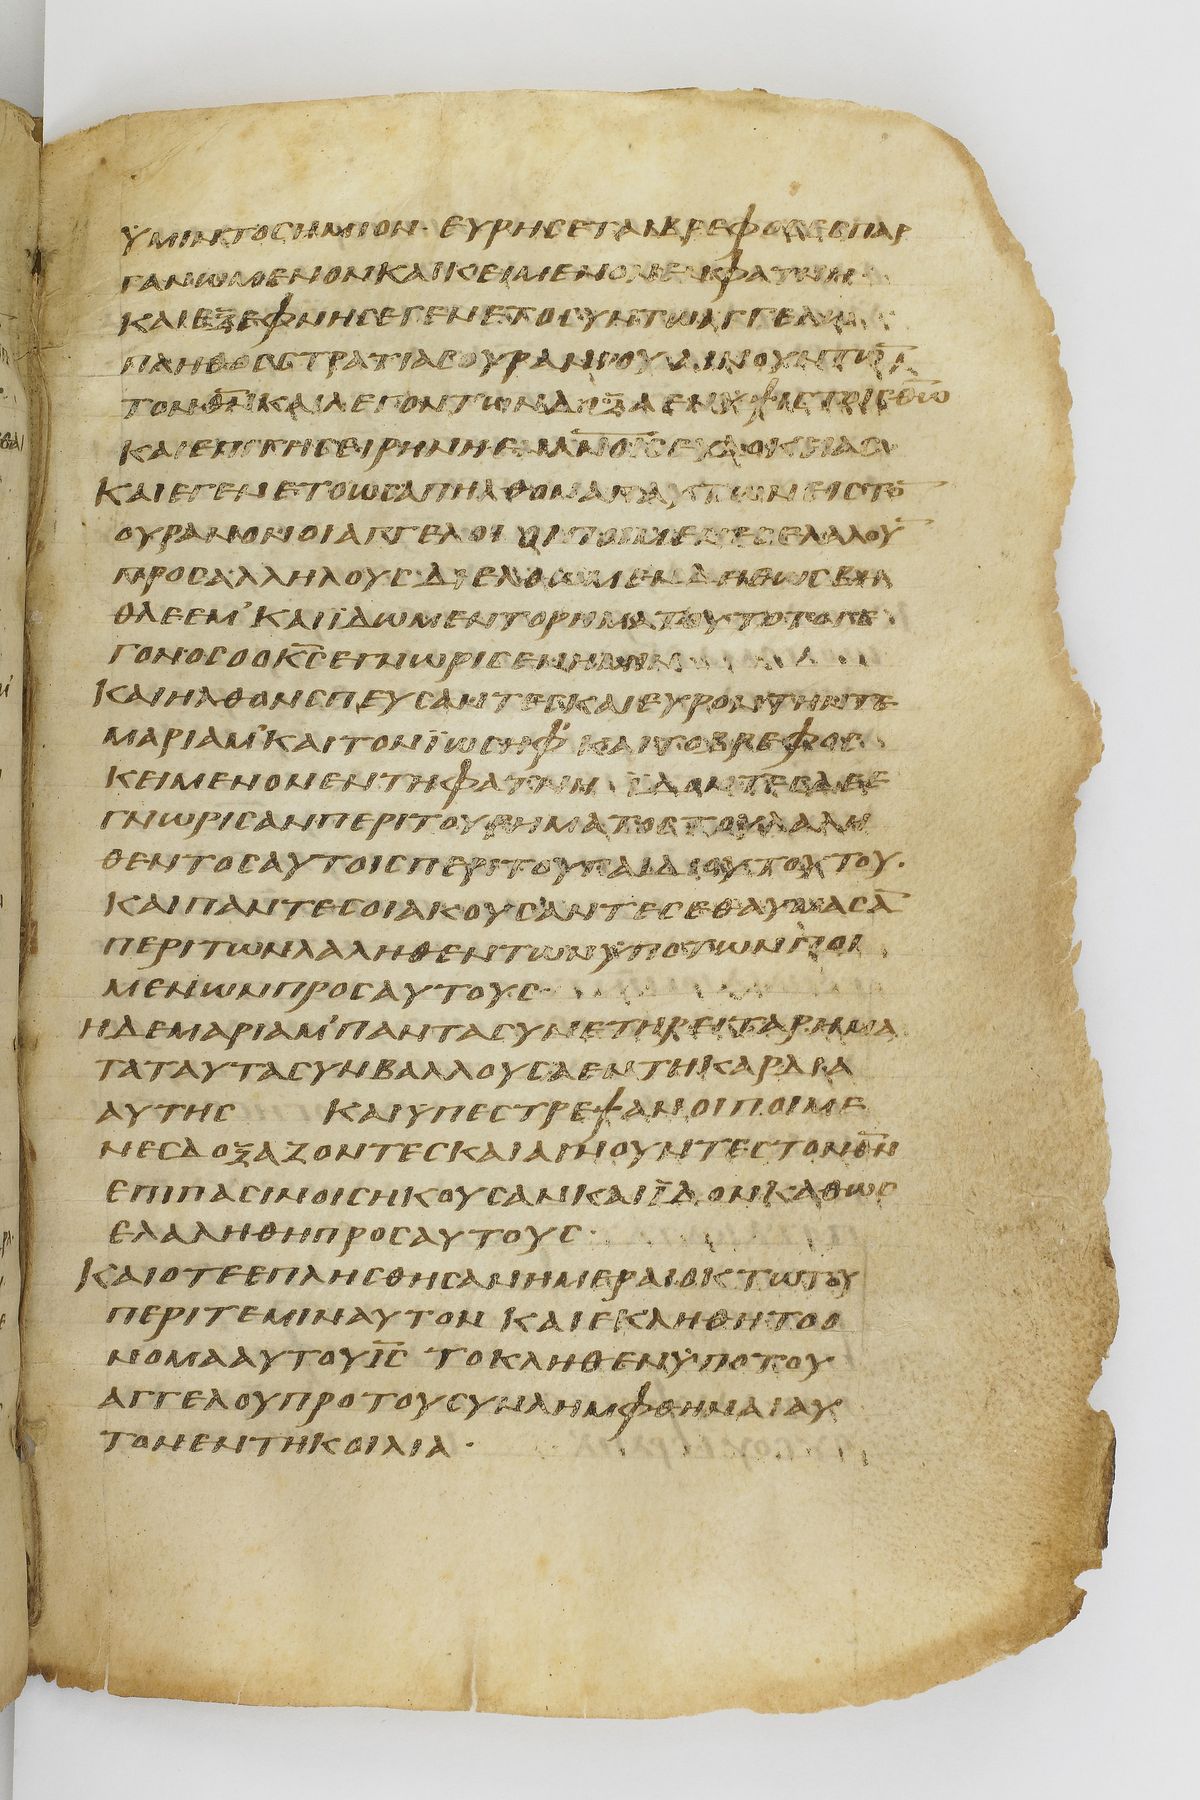 ΫΜΙΝΤΟCΗΜΙΟΝ· ΕΥΡΗCΕΤΑΙΒΡΕΦΟCΕCΠΑΡ
ΓΑΝΩΜΕΝΟΝΚΑΙΚΕΙΜΕΝΟΝΕΝΦΑΤΝΗ
ΚΑΙΕΞΕΦΝΗCΕΓΕΝΕΤΟCΥΝΤΩΑΓΓΕΛΩ
ΠΛΗΘΟCCΤΡΑΤΙΑCΟΥΡΑΝΙΟΥΑΙΝΟΥΝΤΩ̅
ΤΟΝΘ̅Ν̅ΚΑΙΛΕΓΟΝΤΩΝΔΟΞΑΕΝΥΨΙCΤΟΙCΘ̅Ω̅
ΚΑΙΕΠΙΓΗCΕΙΡΗΝΗΕΝΑΝ̅Ο̅ΙCΕΥΔΟΚΙΑC
ΚΑΙΕΓΕΝΕΤΟΩCΑΠΗΛΘΟΝΑΠΑΥΤΩΝΕΙCΤΟ̅
ΟΥΡΑΝΟΝΟΙΑΓΓΕΛΟΙ ΟΙΠΟΙΜΕΝΕCΕΛΑΛΟΥ̅
ΠΡΟCΑΛΛΗΛΟΥC· ΔΙΕΛΘΩΜΕΝΔΗΕΩCΒΗ
ΘΛΕΕΜ’ ΚΑΙΪΔΩΜΕΝΤΟΡΗΜΑΤΟΥΤΟΤΟΓΕ
ΓΟΝΟCΟΟΚ̅C̅ΕΓΝΩΡΙCΕΝΗΜΙΝ
ΚΑΙΗΛΘΟΝCΠΕΥCΑΝΤΕCΚΑΙΕΥΡΟΝΤΗΝΤΕ
ΜΑΡΙΑΜ’ΚΑΙΤΟΝΪΩCΗΦ’ ΚΑΙΤΟΒΡΕΦΟC
ΚΕΙΜΕΝΟΝΕΝΤΗΦΑΤΝΗ ΪΔΟΝΤΕCΔΕ
ΓΝΩΡΙCΑΝΠΕΡΙΤΟΥΡΗΜΑΤΟCΤΟΥΛΑΛΗ
ΘΕΝΤΟCΑΥΤΟΙCΠΕΡΙΤΟΥΠΑΙΔΙΟΥΤΟΥΤΟΥ·
ΚΑΙΠΑΝΤΕCΟΙΑΚΟΥCΑΝΤΕCΕΘΑΥΜΑCΑ̅
ΠΕΡΙΤΩΝΛΑΛΗΘΕΝΤΩΝΥΠΟΤΩΝΠΟΙ
ΜΕΝΩΝΠΡΟCΑΥΤΟΥC·
ΗΔΕΜΑΡΙΑΜ’ΠΑΝΤΑCΥΝΕΤΗΡΕΙΤΑΡΗΜΑ
ΤΑΤΑΥΤΑCΥΝΒΑΛΛΟΥCΑΕΝΤΗΚΑΡΔΙΑ
ΑΥΤΗC ΚΑΙΥΠΕCΤΡΕΨΑΝΟΙΠΟΙΜΕ
ΝΕCΔΟΞΑΖΟΝΤΕCΚΑΙΑΙΝΟΥΝΤΕCΤΟΝΘ̅Ν̅
ΕΠΙΠΑCΙΝΟΙCΗΚΟΥCΑΝΚΑΙΪΔΟΝΚΑΘΩC
ΕΛΑΛΗΘΗΠΡΟCΑΥΤΟΥC·
ΚΑΙΟΤΕΕΠΛΗCΘΗCΑΝΗΜΕΡΑΙΟΚΤΩΤΟΥ
ΠΕΡΙΤΕΜΙΝΑΥΤΟΝ ΚΑΙΕΚΛΗΘΗΤΟΟ
ΝΟΜΑΑΥΤΟΥΙ̅C̅ ΤΟΚΛΗΘΕΝΫΠΟΤΟΥ
ΑΓΓΕΛΟΥΠΡΟΤΟΥCΥΝΛΗΜΦΘΗΝΑΙΑΥ
ΤΟΝΕΝΤΗΚΟΙΛΙΑ·